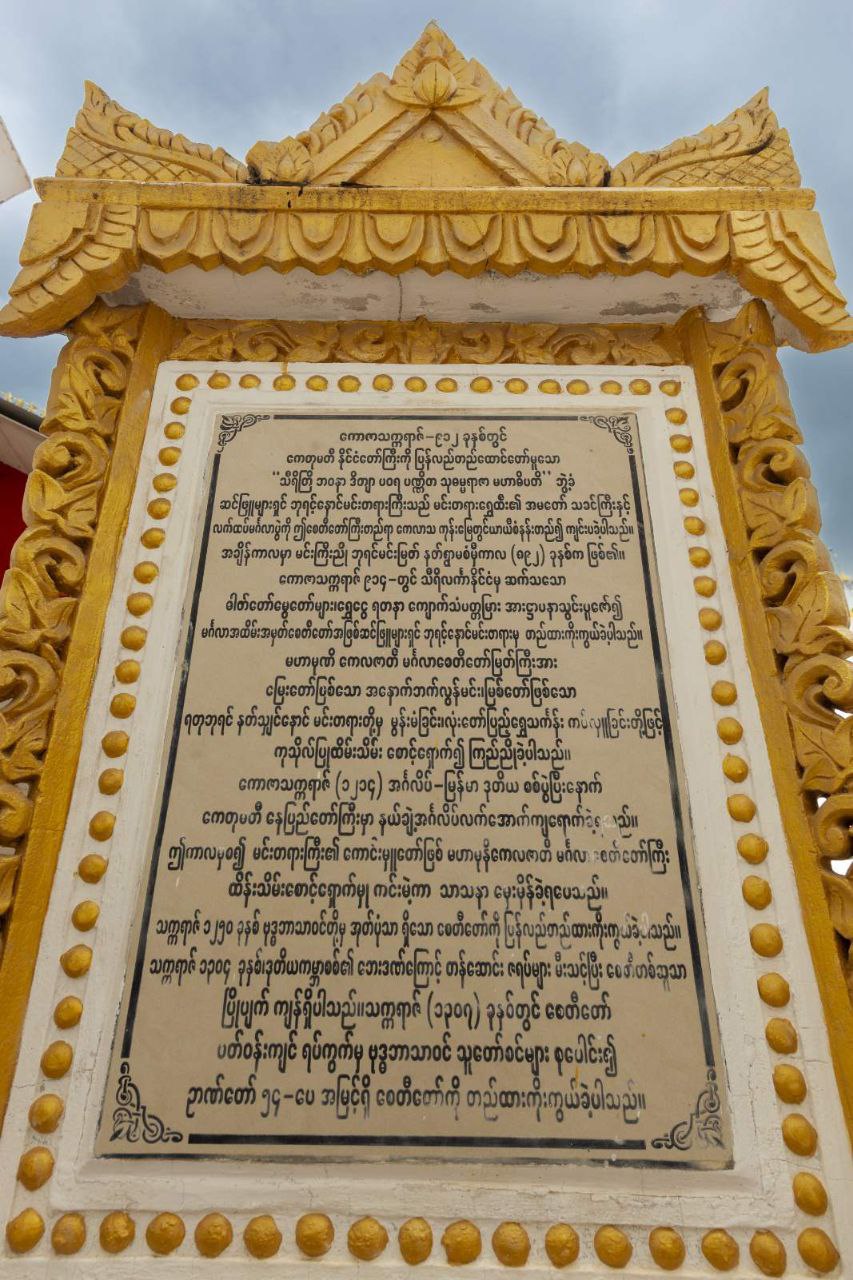 ကောဇာသက္ကရာဇ်-၉၁၂ ခုနှစ်တွင်
ကေတုမတီ နိုင်ငံတော်ကြီးကို ပြန်လည်တည်ထောင်တော်မူသော
"သီရိတြိ ဘဝနာ ဒိတျာ ပဝရ ပဏ္ဍိတ သုဓမ္မရာဇာ မဟာဓိပတိ" ဘွဲ့ခံ
ဆင်ဖြူများရှင် ဘုရင့်နောင်မင်းတရားကြီးသည် မင်းတရားရွှေထီး၏ အမတော် သခင်ကြီးနှင့်
လက်ထပ်မင်္ဂလာပွဲကို ဤစေတီတော်ကြီးတည်ရာ ကေလာသ ကုန်းမြေတွင်ယာယီစံနန်းတည်၍ ကျင်းပခဲ့ပါသည်။
အချိန်ကာလမှာ မင်းကြီးညို ဘုရင်မင်းမြတ် နတ်ရွာမစံမှီကာလ (၈၉၂) ခုနှစ်က ဖြစ်၏။
ကောဇာသက္ကရာဇ် ၉၁၄-တွင် သီရိလင်္ကာနိုင်ငံမှ ဆက်သသော
ဓါတ်တော်မွေတော်များ၊ရွှေငွေ ရတနာ ကျောက်သံပတ္တမြား အားဌာပနာသွင်းပူဇော်၍
မင်္ဂလာအထိမ်းအမှတ်စေတီတော်အဖြစ်ဆင်ဖြူများရှင် ဘုရင့်နောင်မင်းတရားမှ တည်ထားကိုးကွယ်ခဲ့ပါသည်။
မဟာမုဏိ ကေလဇာတိ မင်္ဂလာစေတီတော်မြတ်ကြီးအား
မြေးတော်ပြစ်သော အနောက်ဘက်လွန်မင်း၊မြစ်တော်ဖြစ်သော
ရတုဘုရင် နတ်သျှင်နောင် မင်းတရားတို့မှ မွန်းမံခြင်း၊လုံးတော်ပြည့်ရွှေသင်္ကန်း ကပ်လှူခြင်းတို့ဖြင့်
ကုသိုလ်ပြုထိမ်းသိမ်း စောင့်ရှောက်၍ ကြည်ညိုခဲ့ပါသည်။
ကောဇာသက္ကရာဇ် (၁၂၁၄) အင်္ဂလိပ်-မြန်မာ ဒုတိယ စစ်ပွဲပြီးနောက်
ကေတုမတီ နေပြည်တော်ကြီးမှာ နယ်ချဲ့အင်္ဂလိပ်လက်အောက်ကျရောက်ခဲ့ရသည်။
ဤကာလမှစ၍ မင်းတရားကြီး၏ ကောင်းမှူတော်ဖြစ် မဟာမုနိကေလဇာတိ မင်္ဂလာစေတီတော်ကြီး
ထိန်းသိမ်းစောင့်ရှောက်မှု ကင်းမဲ့ကာ သာသနာ မှေးမှိန်ခဲ့ရပေသည်။
သက္ကရာဇ် ၁၂၅၀ ခုနှစ် ဗုဒ္ဓဘာသာဝင်တို့မှ အုတ်ပုံသာ ရှိသော စေတီတော်ကို ပြန်လည်တည်ထားကိုးကွယ်ခဲ့ပါသည်။
သက္ကရာဇ် ၁၃၀၄ ခုနှစ်၊ဒုတိယကမ္ဘာစစ်၏ ဘေးဒဏ်ကြောင့် တန်ဆောင်း ဇရပ်များ မီးသင့်ပြီး စေတီတစ်ဆူသာ
ပြိုပျက် ကျန်ရှိပါသည်။သက္ကရာဇ် (၁၃၀၇) ခုနှစ်တွင် စေတီတော်
ပတ်ဝန်းကျင် ရပ်ကွက်မှ ဗုဒ္ဓဘာသာဝင် သူတော်စင်များ စုပေါင်း၍
ဥာဏ်တော် ၅၄-ပေ အမြင့်ရှိ စေတီတော်ကို တည်ထားကိုးကွယ်ခဲ့ပါသည်။